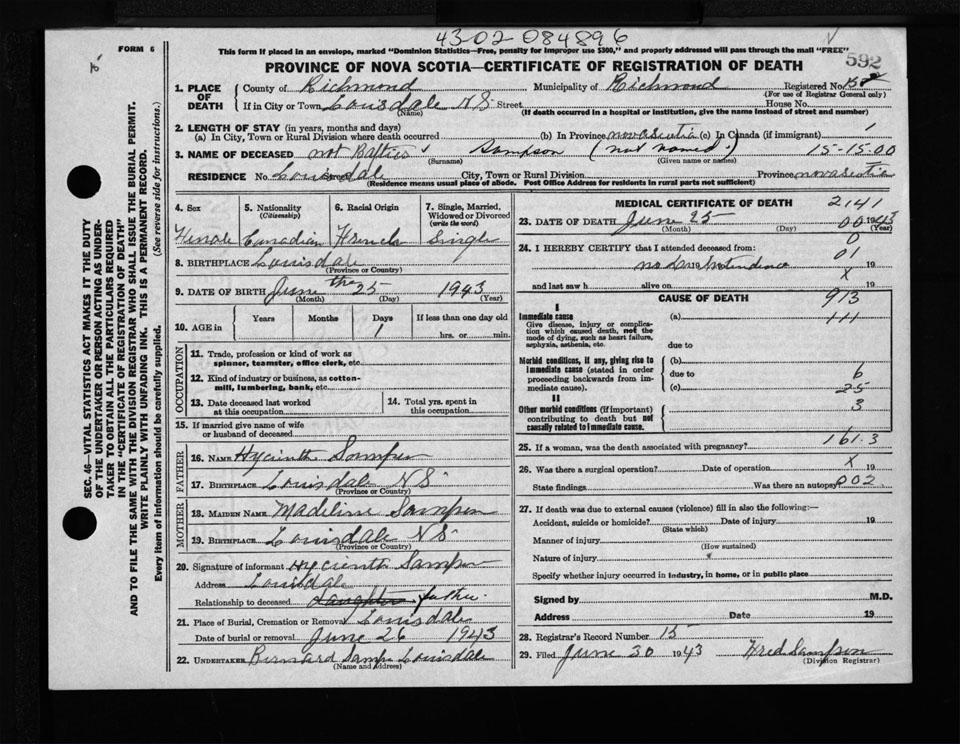 43-02 084896
FORM 6
This form if placed in an envelope, marked "Dominion Statistics—Free, penalty for improper use $300," and properly addressed will pass through the mail "FREE"
592
PROVINCE OF NOVA SCOTIA—CERTIFICATE OF REGISTRATION OF DEATH
1. PLACE OF DEATH
County of Richmond Municipality of Richmond Registered No.
(For use of Registrar General only)
If in City or Town Louisdale N S Street House No.
(Name) (If death occurred in a hospital or institution, give the name instead of street and number)
2. LENGTH OF STAY (in years, months and days)
(a) In City, Town or Rural Division where death occurred (b) In Province nova Scotia (c) In Canada (if immigrant) 1
3. NAME OF DECEASED not Bapties Sampson (not named) 15-15.00
(Surname) (Given name or names)
RESIDENCE No. Louisdale Street City, Town or Rural Division Province nova Scotia
(Residence means usual place of abode. Post Office Address for residents in rural parts not sufficient)
4. Sex
Female
5. Nationality
(Citizenship)
Canadian
6. Racial Origin
French
7. Single, Married, Widowed or Divorced
(write the word)
Single
8. BIRTHPLACE Louisdale
(Province or Country)
9. DATE OF BIRTH June the 25 1943
(Month) (Day) (Year)
10. AGE in
Years Months Days If less than one day old
1 hrs. or min.
OCCUPATION
11. Trade, profession or kind of work as spinner, teamster, office clerk, etc.
12. Kind of industry or business, as cotton-mill, lumbering, bank, etc.
13. Date deceased last worked at this occupation
14. Total yrs. spent in this occupation
15. If married give name of wife or husband of deceased
FATHER
16. NAME Hycinth Sampson
17. BIRTHPLACE Louisdale N S
(Province or Country)
MOTHER
18. MAIDEN NAME Madeline Sampson
19. BIRTHPLACE Louisdale N S
(Province or Country)
20. Signature of informant Hycienth Sampson
Address Louisdale
Relationship to deceased Daughter father
21. Place of Burial, Cremation or Removal Louisdale
Date of burial or removal June 26 1943
22. UNDERTAKER Bernard Sampson Louisdale
(Name and address)
MEDICAL CERTIFICATE OF DEATH 2141
23. DATE OF DEATH June 25 00 1943
(Month) (Day) (Year)
0
24. I HEREBY CERTIFY that I attended deceased from:
01
19
and last saw h alive on X 19
CAUSE OF DEATH 913
I
Immediate cause
Give disease, injury or complication which caused death, not the mode of dying, such as heart failure, asphyxia, asthenia, etc.
(a) 111
due to
Morbid conditions, if any, giving rise to immediate cause (stated in order proceeding backwards from immediate cause).
(b)
due to 6
(c) 25
II
Other morbid conditions (if important) contributing to death but not causally related to immediate cause.
3
161.3
25. If a woman, was the death associated with pregnancy?
26. Was there a surgical operation? Date of operation X 19
State findings Was there an autopsy 002
27. If death was due to external causes (violence) fill in also the following:—
Accident, suicide or homicide? Date of injury 19
(State which)
Manner of injury
(How sustained)
Nature of injury
Specify whether injury occurred in industry, in home, or in public place
Signed by M.D.
Address Date 19
28. Registrar's Record Number 15
29. Filed June 30 1943 Fred Sampson
(Division Registrar)
SEC. 46—VITAL STATISTICS ACT MAKES IT THE DUTY
OF THE UNDERTAKER OR PERSON ACTING AS UNDER-
TAKER TO OBTAIN ALL THE PARTICULARS REQUIRED
IN THE "CERTIFICATE OF REGISTRATION OF DEATH"
AND TO FILE THE SAME WITH THE DIVISION REGISTRAR WHO SHALL ISSUE THE BURIAL PERMIT.
WRITE PLAINLY WITH UNFADING INK. THIS IS A PERMANENT RECORD.
Every item of information should be carefully supplied. (See reverse side for instructions.)